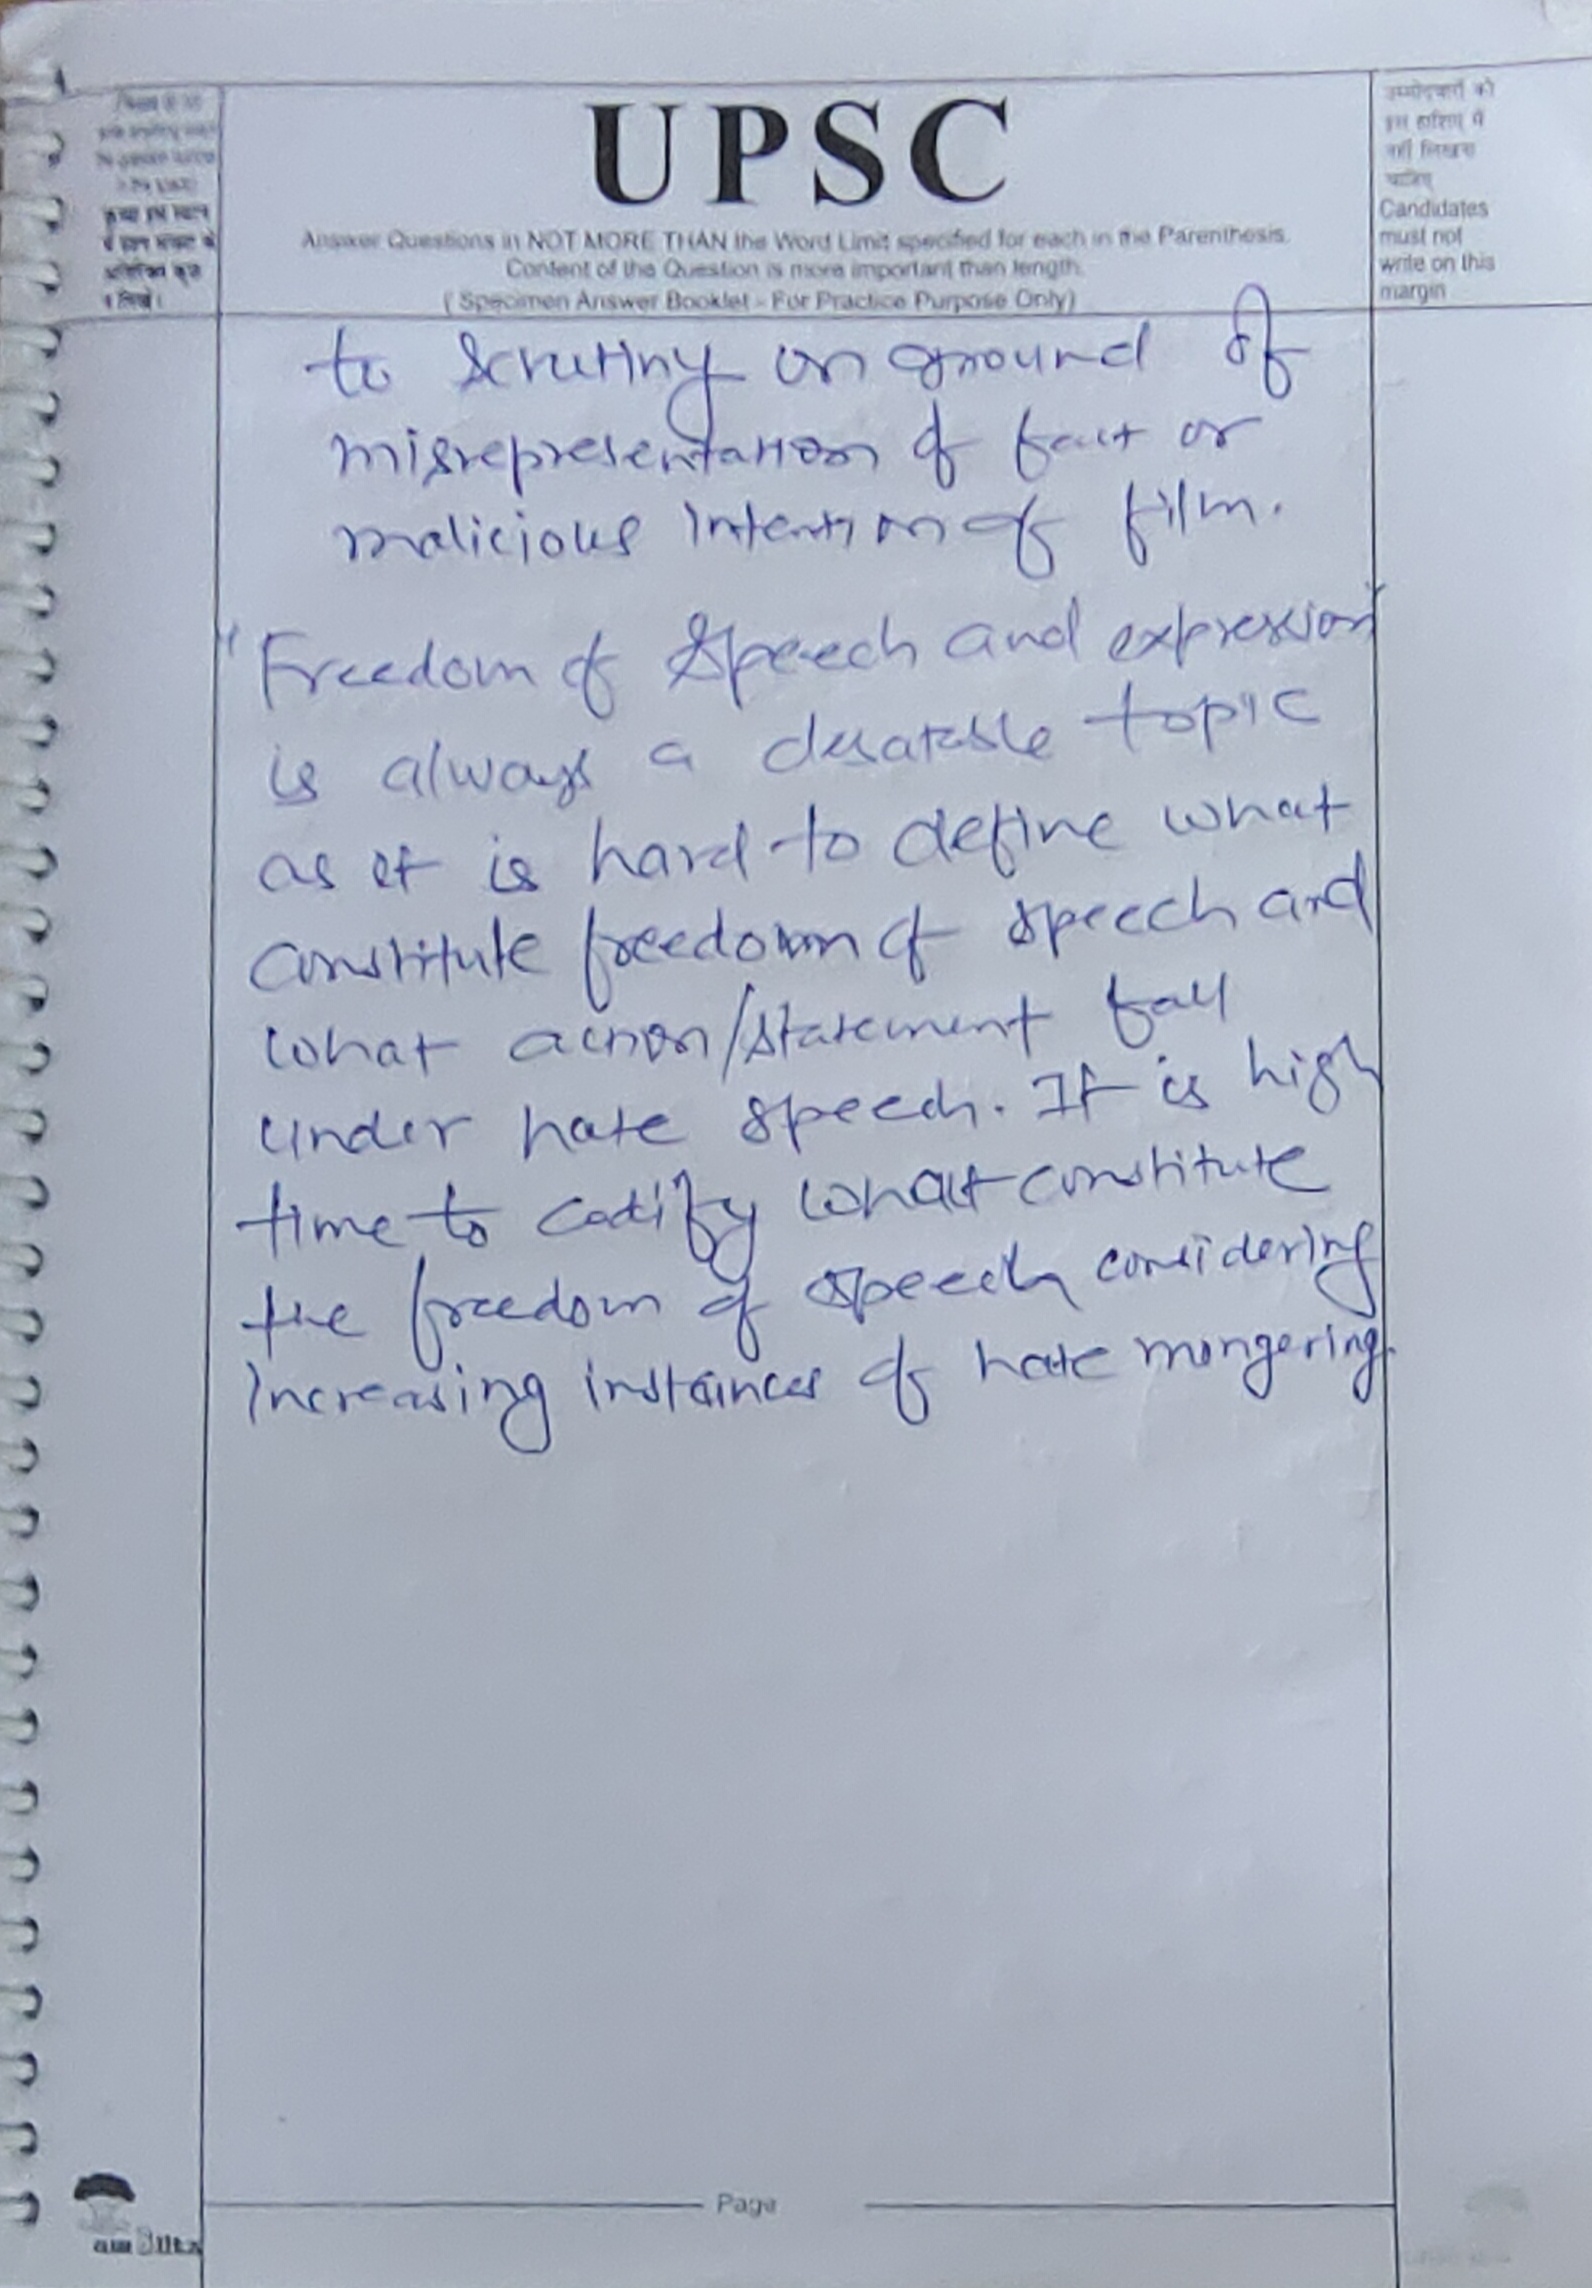 UPSC
Answer Questions in NOT MORE THAN the Word Limit specified for each in the Parenthesis.
Content of the Question is more important than length.
( Specimen Answer Booklet - For Practice Purpose Only)
उम्मीदवारों को
इस हाशिए में
नहीं लिखना
चाहिए
Candidates
must not
write on this
margin
to scrutiny on ground of
misrepresentation of fact or
malicious intention of film.
"Freedom of speech and expression"
is always a desatable topic
as it is hard to define what
constitute freedom of speech and
what action/statement fall
under hate speech. It is high
time to codify what constitute
the freedom of speech considering
increasing instances of hate mongering.
Page